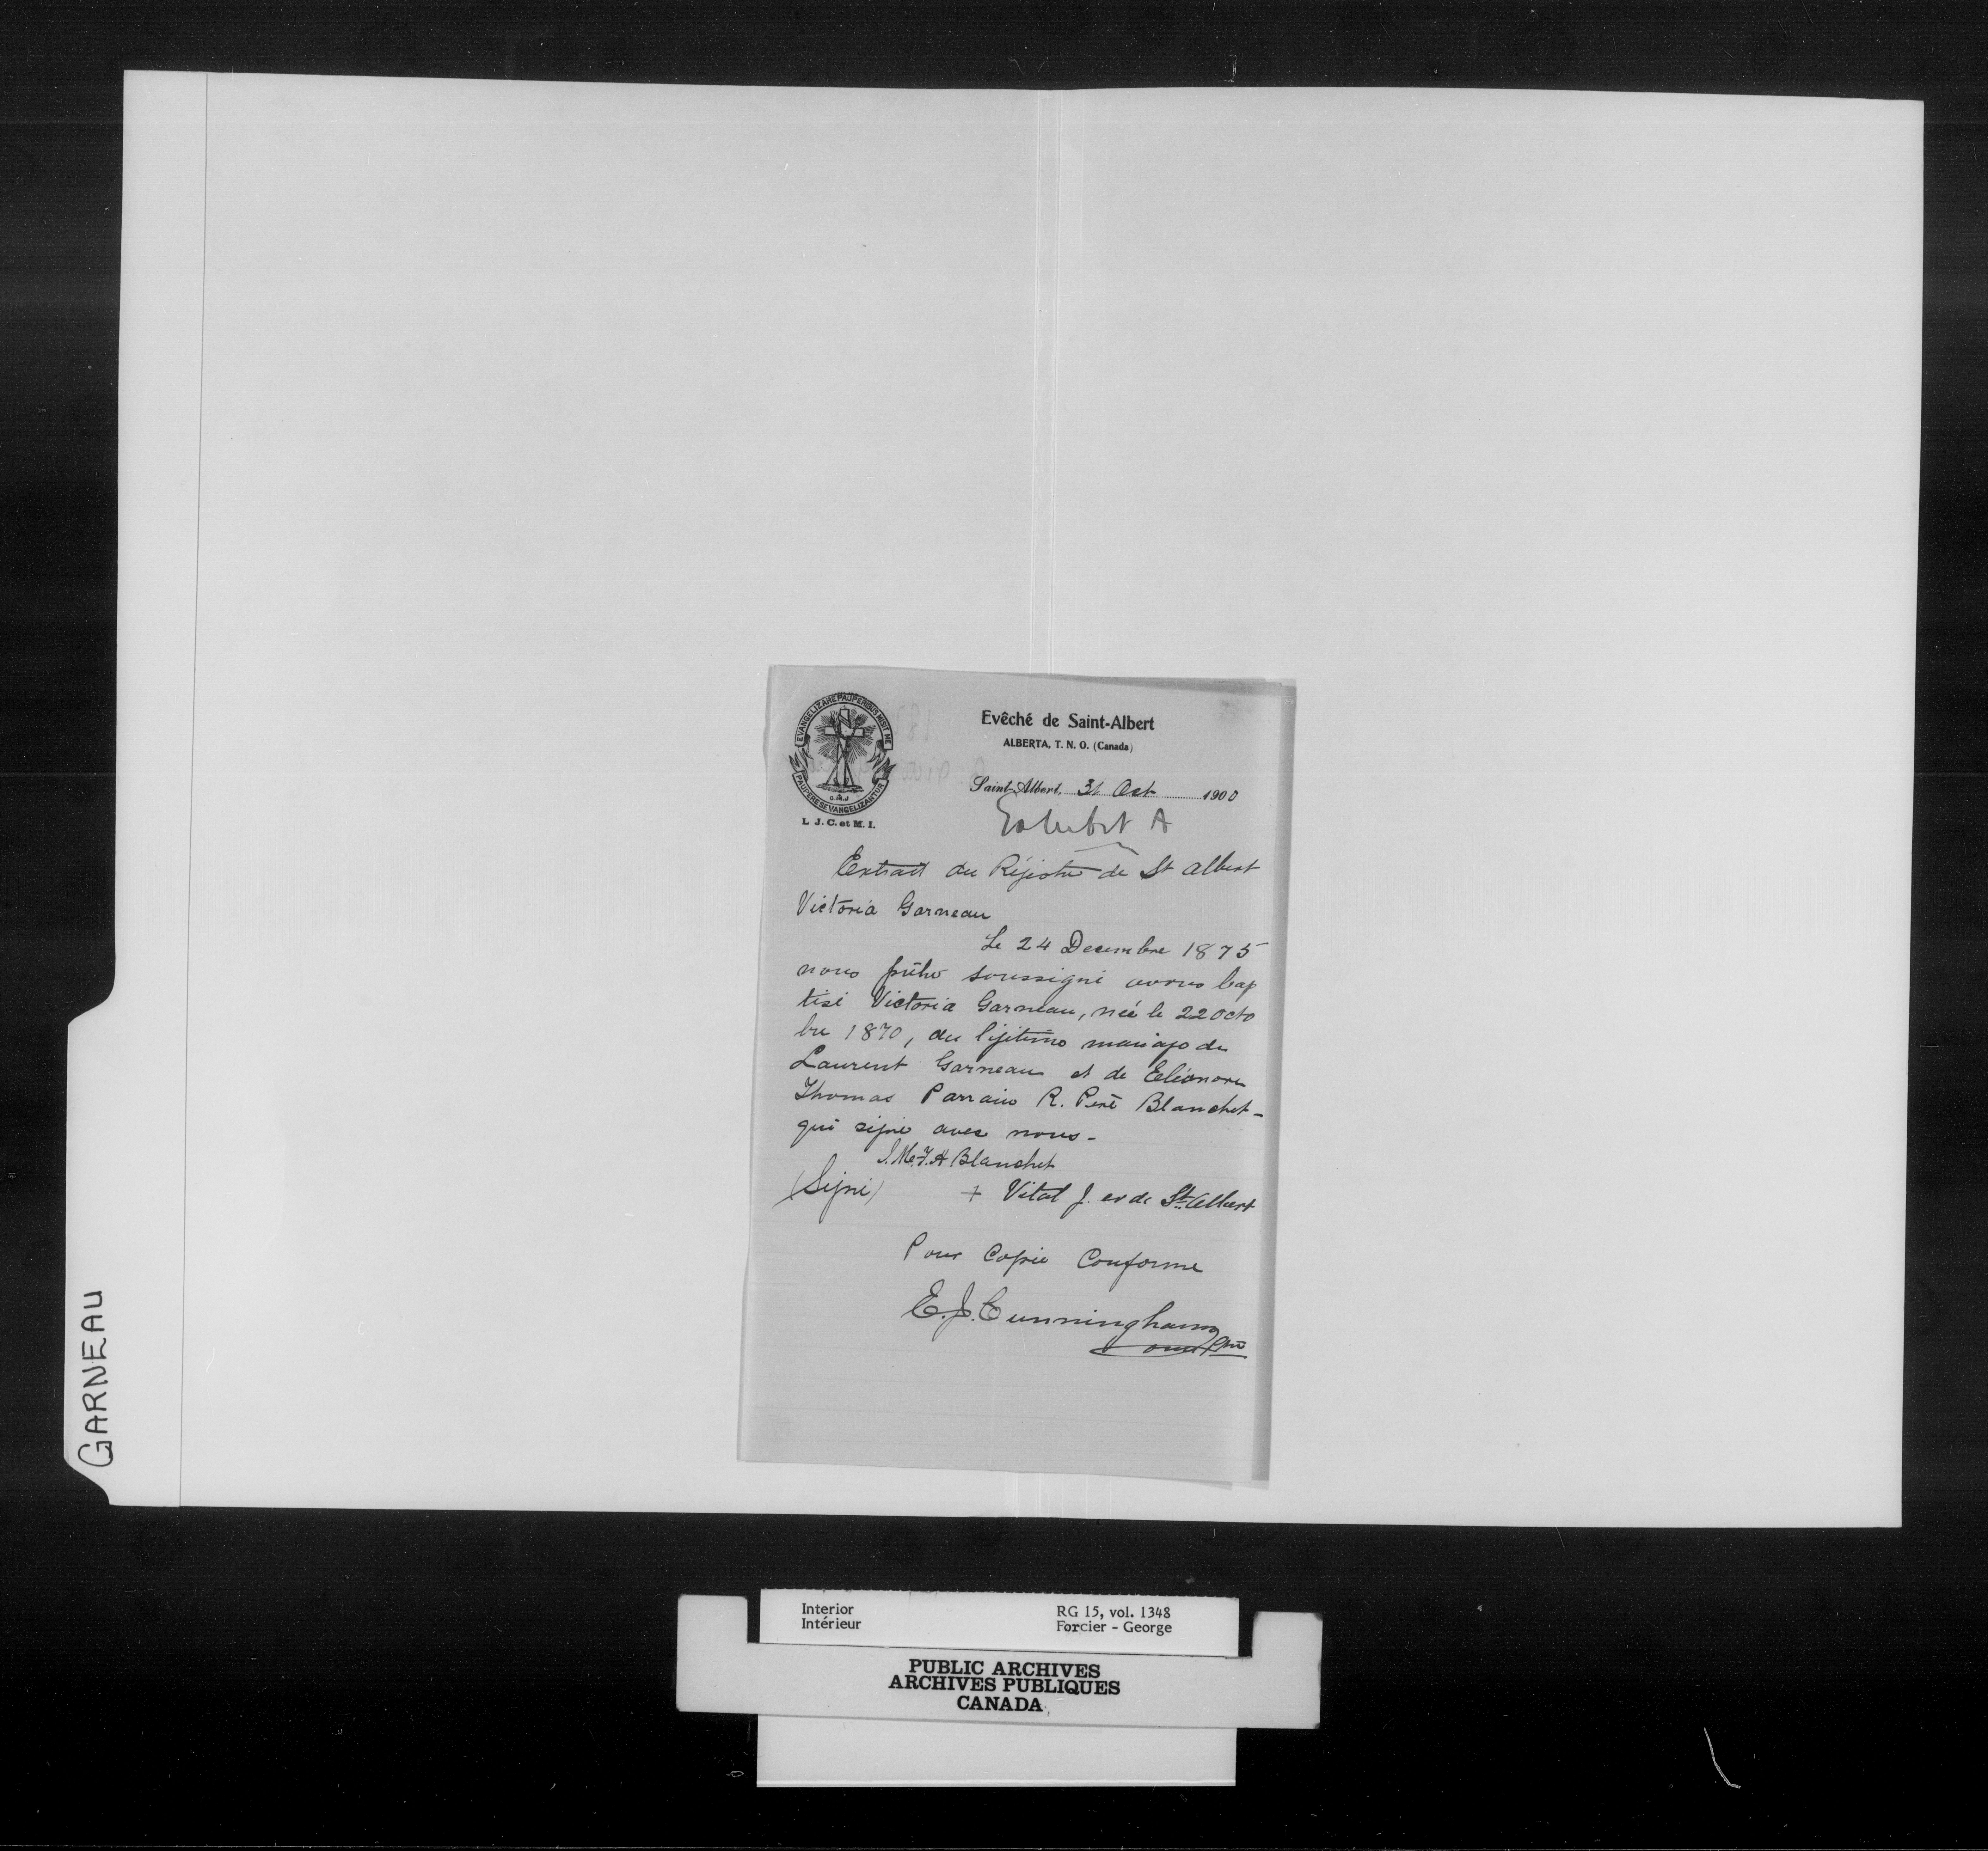 EVANGELIZARE PAUPERIBUS MISIT ME
PAUPERES EVANGELIZANTUR
O.M.I
L. J. C. et M. I.
Evêché de Saint-Albert
ALBERTA, T. N. O. (Canada)
Saint-Albert, 31 Oct 1900
Exhibit A
Extrait du Régistre de St Albert
Victoria Garneau
Le 24 Decembre 1875
nous prêtre soussigné avons bap
tisé Victoria Garneau, née le 22 octo
bre 1870, du légitime mariage de
Laurent Garneau et de Eléonore
Thomas Parrain R. Père Blanchet -
qui signe avec nous -
J. Me. F. A Blanchet
(Signé) + Vital J. ev de St. Albert
Pour Copie Conforme
E. J. Cunningham
omi Ptre
GARNEAU
Interior
Intérieur
RG 15, vol. 1348
Forcier - George
PUBLIC ARCHIVES
ARCHIVES PUBLIQUES
CANADA